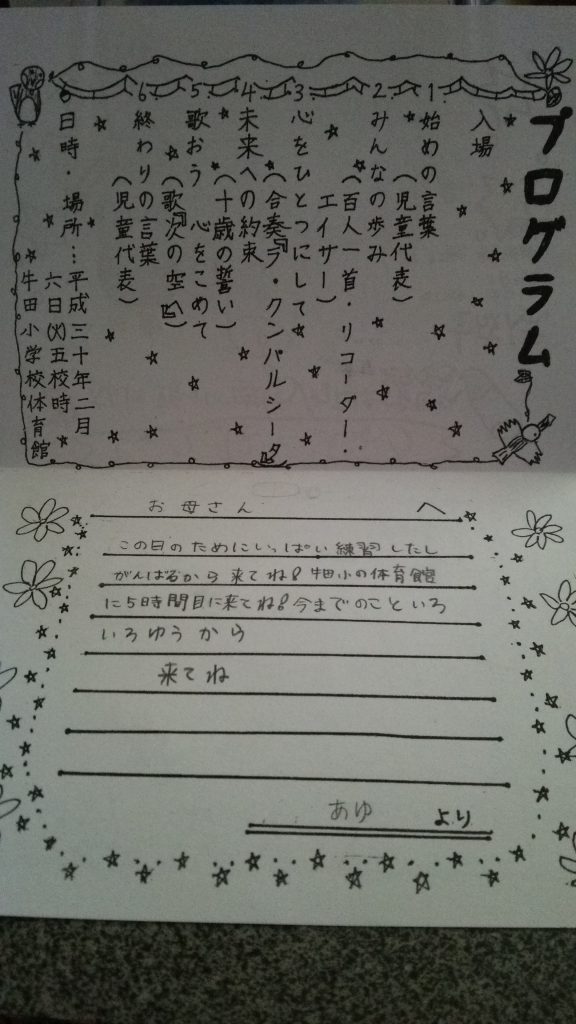 プログラム
入場
1.始めの言葉
（児童代表）
2.みんなの歩み
（百人一首・リコーダー・
エイサー）
3.心をひとつにして
（合奏『ラ・クンパルシータ』）
4.未来への約束
（十歳の誓い）
5.歌おう 心をこめて
（歌『次の空』）
6.終わりの言葉
（児童代表）
日時・場所…平成三十年二月
六日(火)五校時
牛田小学校体育館
お母さん へ
この日のためにいっぱい練習したし
がんばるから来てね!牛田小の体育館
に5時間目に来てね!今までのこといろ
いろゆうから
来てね
あゆ より